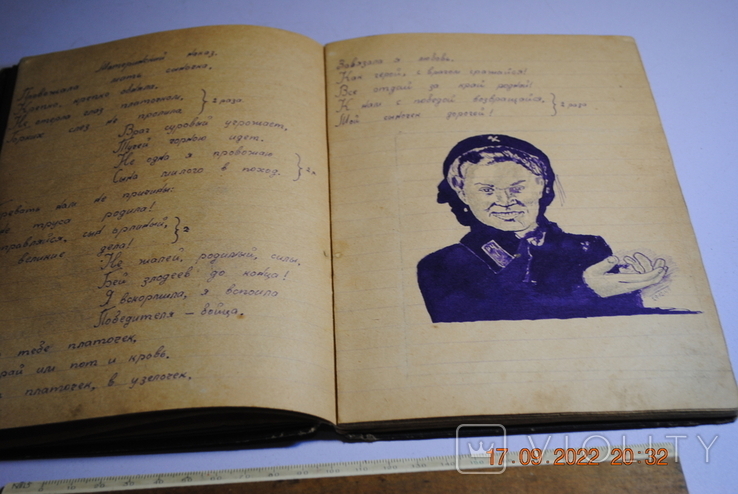 Материнский наказ.
Провожала мать сыночка,
Крепко, крепко обняла.
Не отерла слез платочком,
Горьких слез не пролила } 2 раза
Враг суровый угрожает,
Тучей горною идет.
Не одна я провожаю
Сына милого в поход. } 2 р
нам не причины:
не труса родила!
Отправляйся, сын орлиный,
великие дела! } 2
Не жалей, родимый, силы,
Бей злодеев до конца!
Я вскормила, я вспоила
Победителя – бойца.
тебе платочек,
им пот и кровь.
платочек, в узелочек,
Завязала я любовь.
Как герой, с врагом сражайся!
Всё отдай за край родной!
К нам с победой возвращайся,
Мой сыночек дорогой! } 2 раза
VIOLITY
17.09.2022 20:32